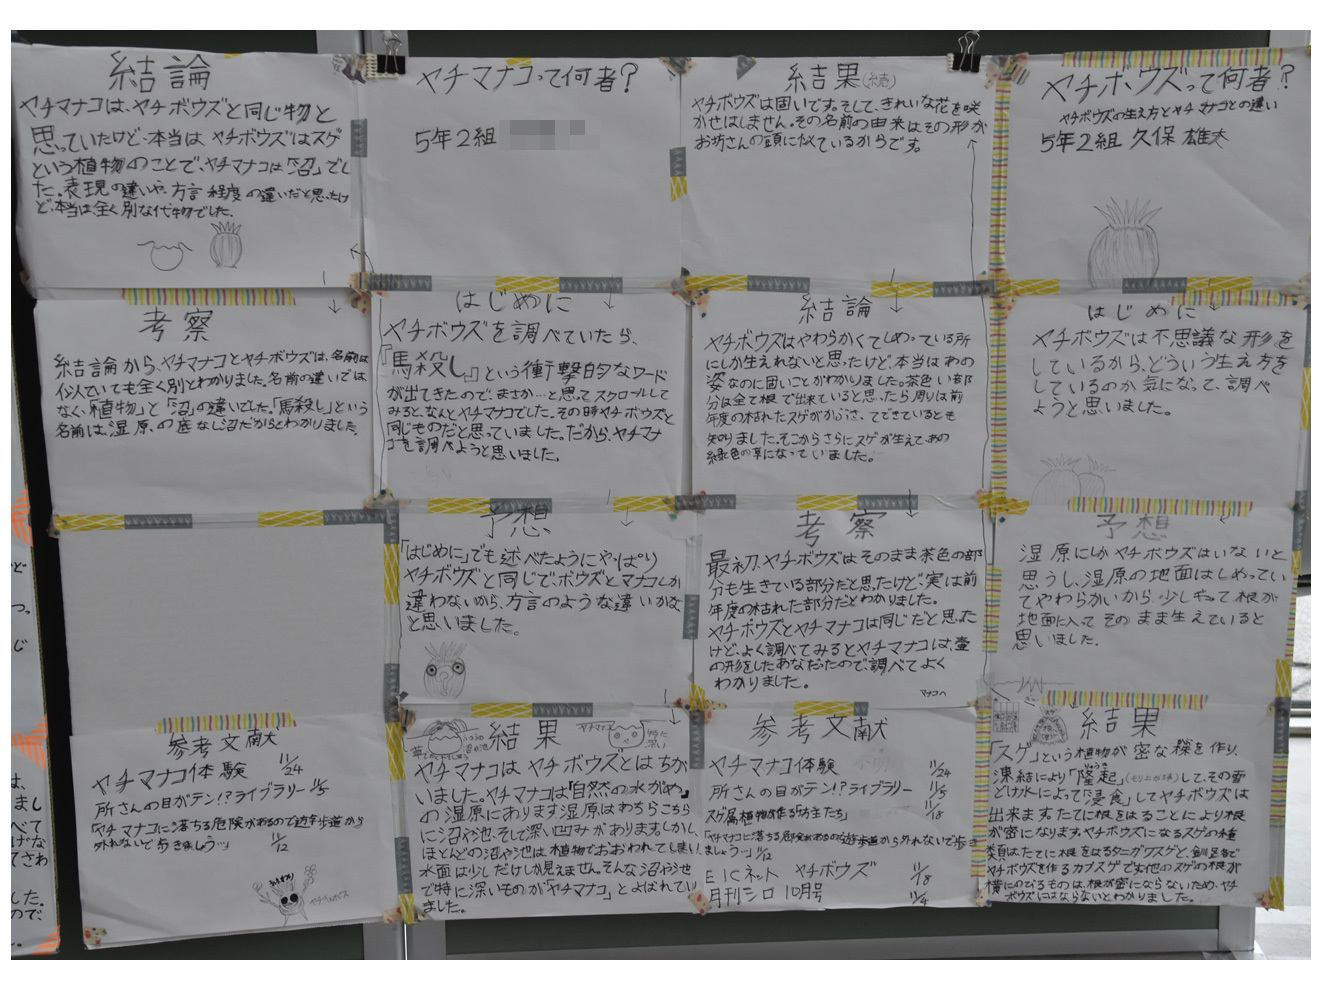 ヤチボウズって何者?
ヤチボウズの生え方とヤチマナコとの違い
5年2組 久保 雄大
はじめに
ヤチボウズは不思議な形を
しているから、どういう生え方を
しているのか気になって、調べ
ようと思いました。
予想
湿原にしかヤチボウズはいないと
思うし、湿原の地面はしめってい
てやわらかいから、少しもって根が
地面に入ってそのまま生えていると
思いました。
結果
「スゲ」という植物が密な株を作り、
凍結により「隆起」して、その雪
どけ水によって「浸食」してヤチボウズは
出来ます。たてに根をはることにより根
が密になります。ヤチボウズになるスゲの種
類はたてに根をはるタニガワスゲと、釧路等で
ヤチボウズを作るカブスゲです。他のスゲの根が
横にのびるものは、根が密にならないため、ヤチ
ボウズにはならないとわかりました。
結果(続き)
ヤチボウズは固いです。そして、きれいな花を咲
かせはしません。その名前の由来はその形が
お坊さんの頭に似ているからです。
結論
ヤチボウズはやわらかくてしめっている所
にしか生えれないと思ったけど、本当はあの
姿なのに固いことがわかりました。茶色い部
分は全て根で出来ていると思ったら周りは前
年度の枯れたスゲがからさってできているとも
知りました。そこからさらにスゲが生えてあの
緑色の草になっていました。
考察
最初、ヤチボウズはそのまま茶色の部
分も生きている部分だと思ったけど、実は前
年度の枯れた部分だとわかりました。
ヤチボウズとヤチマナコは同じだと思った
けど、よく調べてみるとヤチマナコは、壷
の形をしたあなだったので、調べてよく
わかりました。
マナコへ
参考文献
ヤチマナコ体験 11/24
所さんの目がテン!?ライブラリー 11/5
スゲ属植物が作る「坊主たち」 11/18
「ヤチマナコに落ちる危険があるので遊歩道から外れないで歩き
ましょうッ」 11/12
EICネット ヤチボウズ 11/18
月刊シロ 10月号 11/4
ヤチマナコって何者?
5年2組
はじめに
ヤチボウズを調べていたら、
『馬殺し』という衝撃的なワード
が出てきたので、まさか…と思ってスクロールして
みると、なんとヤチマナコでした。その時ヤチボウズと
同じものだと思っていました。だから、ヤチマナ
コを調べようと思いました。
予想
「はじめに」でも述べたようにやっぱり
ヤチボウズと同じで、ボウズとマナコしか
違わないから、方言のような違いかな
と思いました。
結果
ヤチマナコはヤチボウズとはちが
いました。ヤチマナコは「自然の水がめ」。
の湿原にあります。湿原はあちらこちら
に沼や池、そして深い凹みがあります。しかし、
ほとんどの沼や池は植物でおおわれてしまい、
水面は少しだけしか見えません。そんな沼や池
で特に深いものが「ヤチマナコ」とよばれてい
ました。
結論
ヤチマナコは、ヤチボウズと同じ物と
思っていたけど、本当はヤチボウズはスゲ
という植物のことで、ヤチマナコは「沼」でし
た。表現の違いや、方言程度の違いだと思ったけ
ど、本当は、全く別な代物でした。
考察
結論から、ヤチマナコとヤチボウズは、名前は
似ていても全く別とわかりました。名前の違いでは
なく、「植物」と「沼」の違いでした。「馬殺し」という
名前は、湿原の底なし沼だからとわかりました。
参考文献
ヤチマナコ体験 11/24
所さんの目がテン!?ライブラリー 11/5
「ヤチマナコに落ちる危険があるので遊歩道から
外れないで歩きましょうッ」
11/12